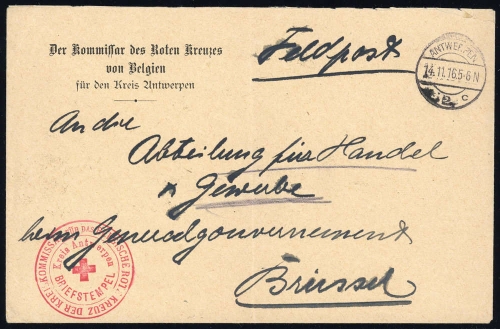 Der Kommissar des Roten Kreuzes
von Belgien
für den Kreis Antwerpen
Feldpost
ANTWERPEN
14.11.16 5-6 N
C
An die
Abteilung für Handel
& Gewerbe
beim Generalgouvernement
Brüssel
Kreis Antwerpen
BRIEFSTEMPEL